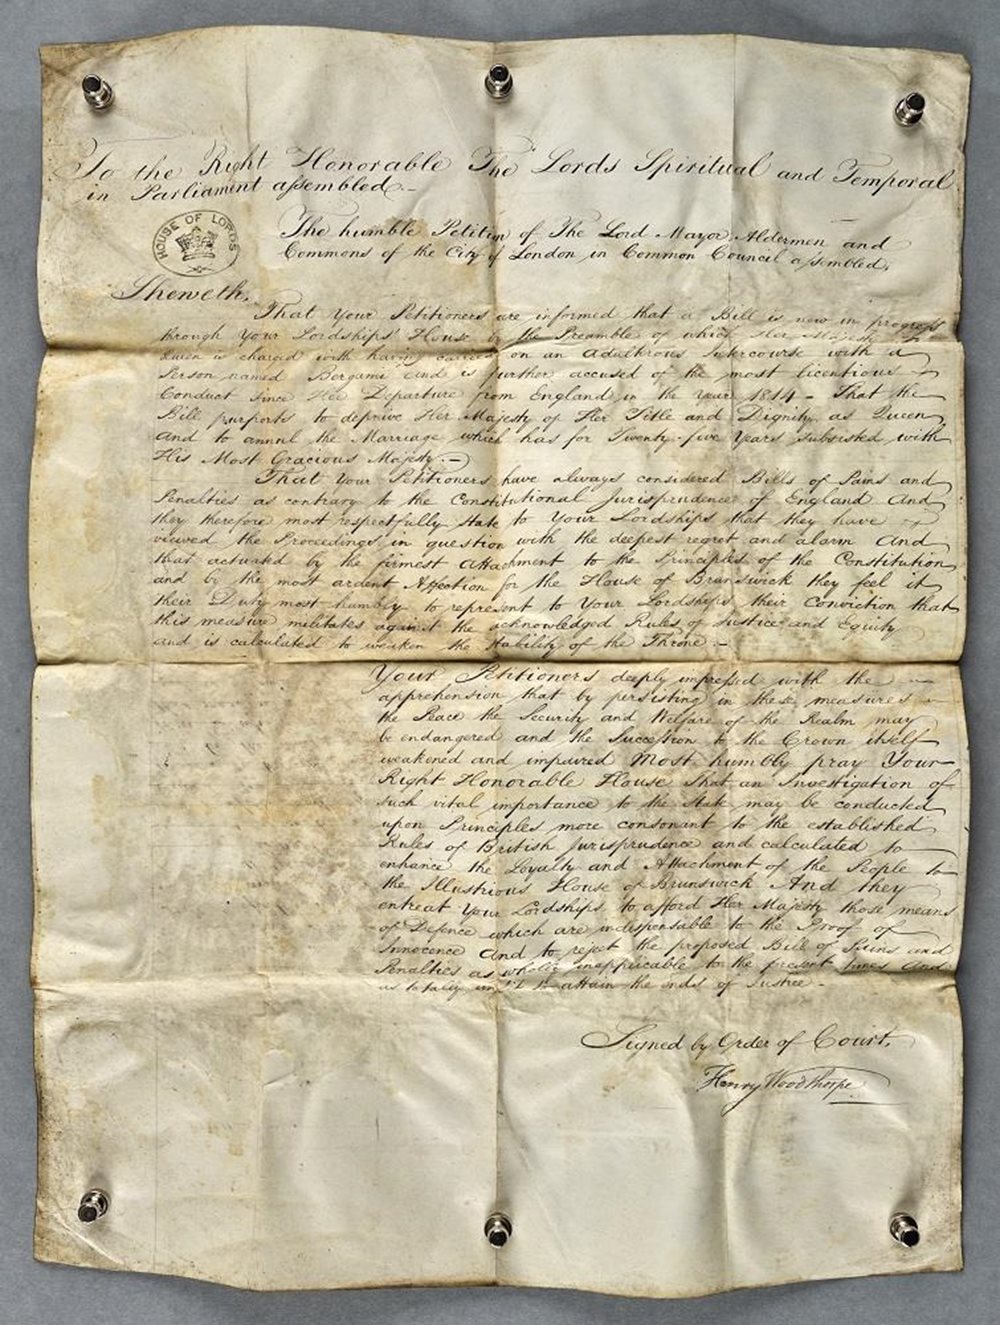 To the Right Honorable The Lords Spiritual and Temporal
in Parliament assembled.-
HOUSE OF LORDS
The humble Petition of The Lord Mayor, Aldermen and
Commons of the City of London, in Common Council assembled,
Sheweth,
That Your Petitioners are informed that a Bill is now in progress
through Your Lordships' House by the Preamble of which Her Majesty the
Queen is charged with having carried on an Adulterous Intercourse with a
Person named Bergami and is further accused of the most licentious
Conduct since Her Departure from England in the Year 1814 - That the
Bill purports to deprive Her Majesty of Her Title and Dignity as Queen
and to annul the Marriage which has for Twenty-five Years subsisted with
His Most Gracious Majesty.-
That Your Petitioners have always considered Bills of Pains and
Penalties as contrary to the Constitutional Jurisprudence of England And
they therefore most respectfully state to Your Lordships that they have
viewed the Proceedings in question with the deepest regret and alarm And
that actuated by the firmest Attachment to the Principles of the Constitution
and by the most ardent Affection for the House of Brunswick they feel it
their Duty most humbly to represent to Your Lordships their Conviction that
this measure militates against the acknowledged Rules of Justice and Equity
and is calculated to weaken the Stability of the Throne.-
Your Petitioners deeply impressed with the
apprehension that by persisting in these measures
the Peace the Security and Welfare of the Realm may
be endangered and the Succession to the Crown itself
weakened and impaired Most humbly pray Your
Right Honorable House that an Investigation of
such vital importance to the State may be conducted
upon Principles more consonant to the established
Rules of British Jurisprudence and calculated to
enhance the Loyalty and Attachment of the People to
the Illustrious House of Brunswick And they
entreat Your Lordships to afford Her Majesty those means
of Defence which are indispensable to the Proof of
Innocence and to reject the proposed Bill of Pains and
Penalties as wholly inapplicable to the present times and
as totally unfit to attain the ends of Justice.-
Signed by Order of Court,
Henry Woodthorpe